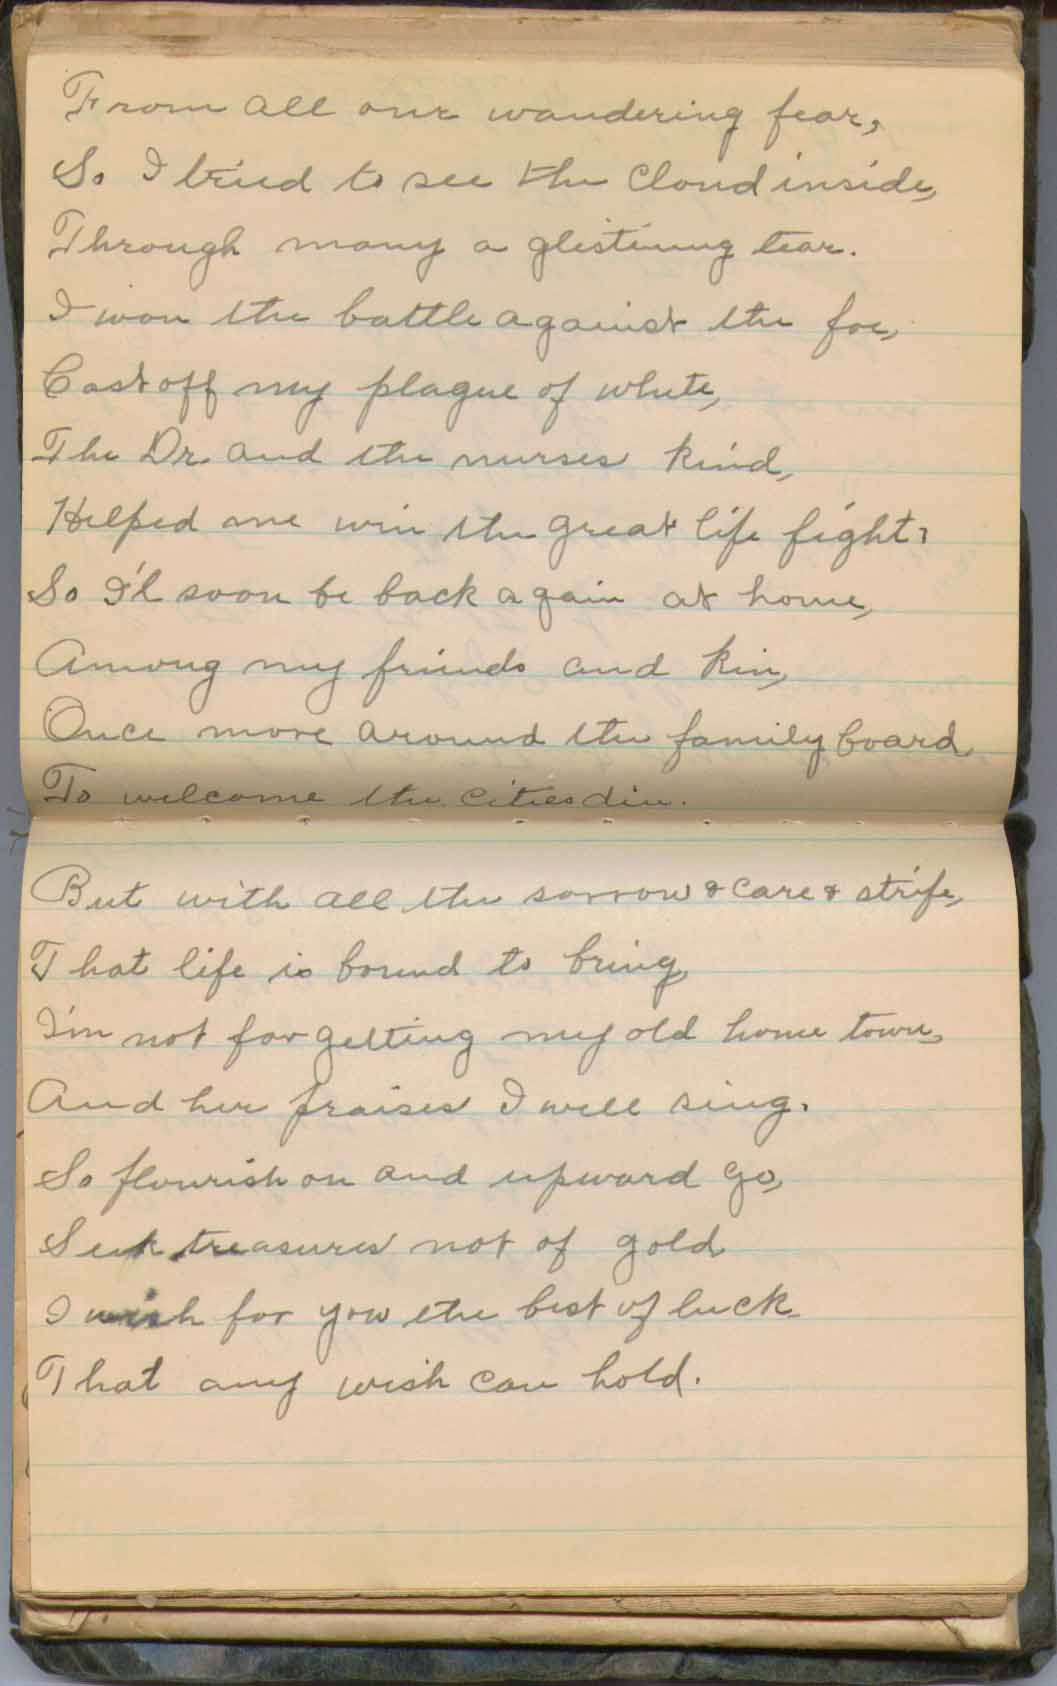 From all our wandering fear,
So I tried to see the cloud inside,
Through many a glistining tear.
I won the battle against the foe,
Cast off my plague of white,
The Dr and the nurses kind,
Helped me win the great life fight,
So I'l soon be back again at home,
Among my friends and kin,
Once more around the family board
To welcome the cities din.
But with all the sorrow & care & strife,
That life is bound to bring,
I'm not forgetting my old home town,
And her praises I will sing.
So flourish on and upward go,
Seek treasures not of gold
I wish for you the best of luck
That any wish can hold.